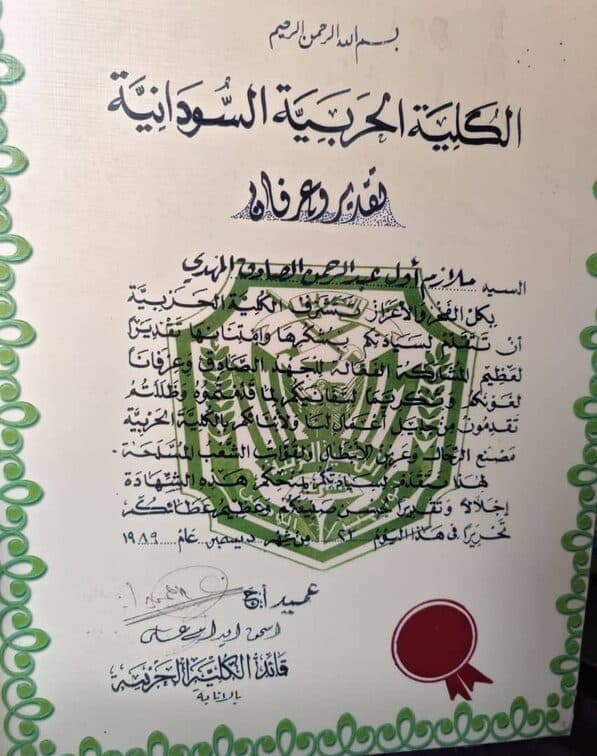 بسم الله الرحمن الرحيم
الكلية الحربية السودانية
تقدير وعرفان
السيد ملازم أول عبدالرحمن الصادق المهدي
بكل الفخر والأعزاز تتشرف الكلية الحربية
أن تتقدم لسيادتكم بشكرها وامتنانها تقديراً
لعظيم المشاركة الفعالة للجهد الصادق وعرفاناً
لعونكم وتكريماً لتفانيكم لما قدمتموه وظللتم
تقدمون من جليل أعمال لها ولأبنائكم بالكلية الحربية
مصنع الرجال وعرين الأبطال لقوات الشعب المسلحة
لهذا نتقدم لسيادتكم بمنحكم هذه الشهادة
إجلالاً وتقديراً لحسن صنيعكم وعظيم عطائكم
تحريراً في هذا اليوم من شهر ديسمبر عام ١٩٨٩
عميد أ.ح
قائد الكلية الحربية
بالإنابة